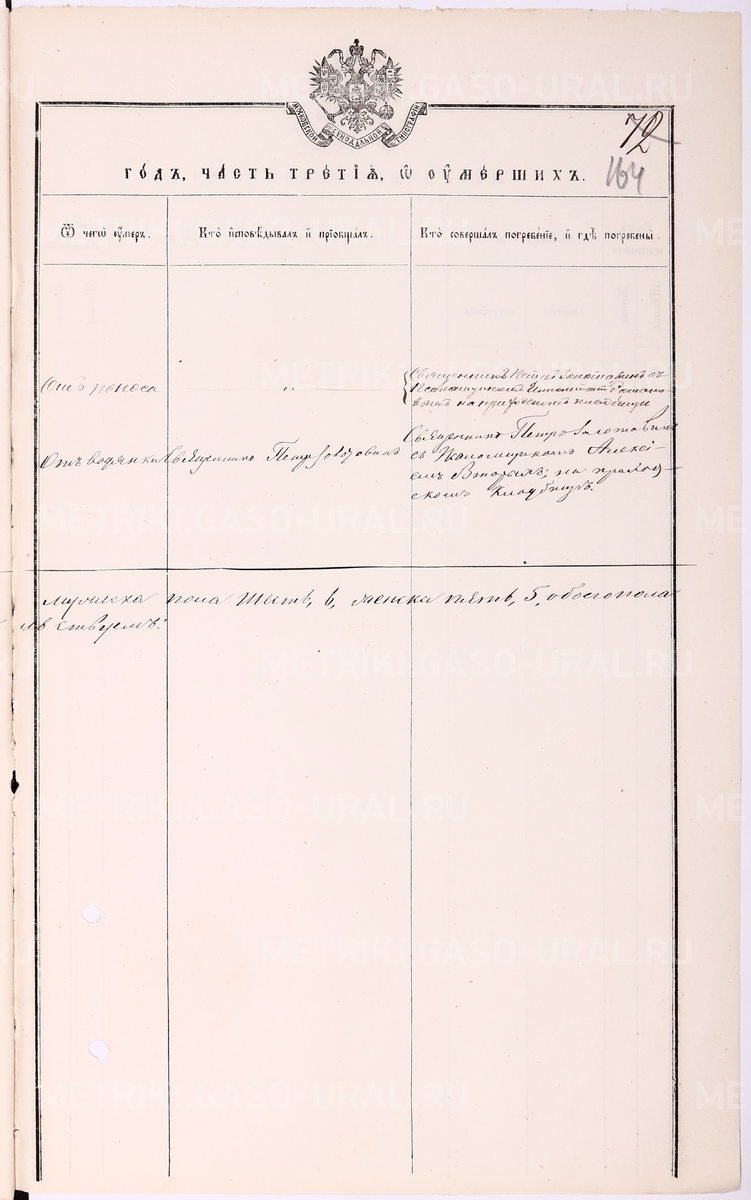 МОСКОВСКОЙ СѴНОДАЛЬНОЙ ТИПОГРАФІИ
72
164
го́дъ, ча́сть тре́тїѧ, ѡ҆ ᲂу҆ме́ршихъ.
Ѿ чегѡ̀ ᲂу҆́меръ.
Кто̀ и҆сповѣ́дывалъ и҆ прїѡбща́лъ.
Кто̀ соверша́лъ погребе́нїе, и҆ гдѣ̀ погребены̀.
Отъ поноса
"
Священникъ Петръ Золотавинъ съ
Псаломщикомъ
на приходскомъ кладбищѣ
Отъ водянки
Священникъ Петръ Золотавинъ
Священникъ Петръ Золотавинъ
съ Псаломщикомъ Алексѣ-
емъ Вторымъ; на приход-
скомъ кладбищѣ.
мужеска пола шесть, 6, женска пять, 5, обоего пола
METRIKI.GASO-URAL.RU